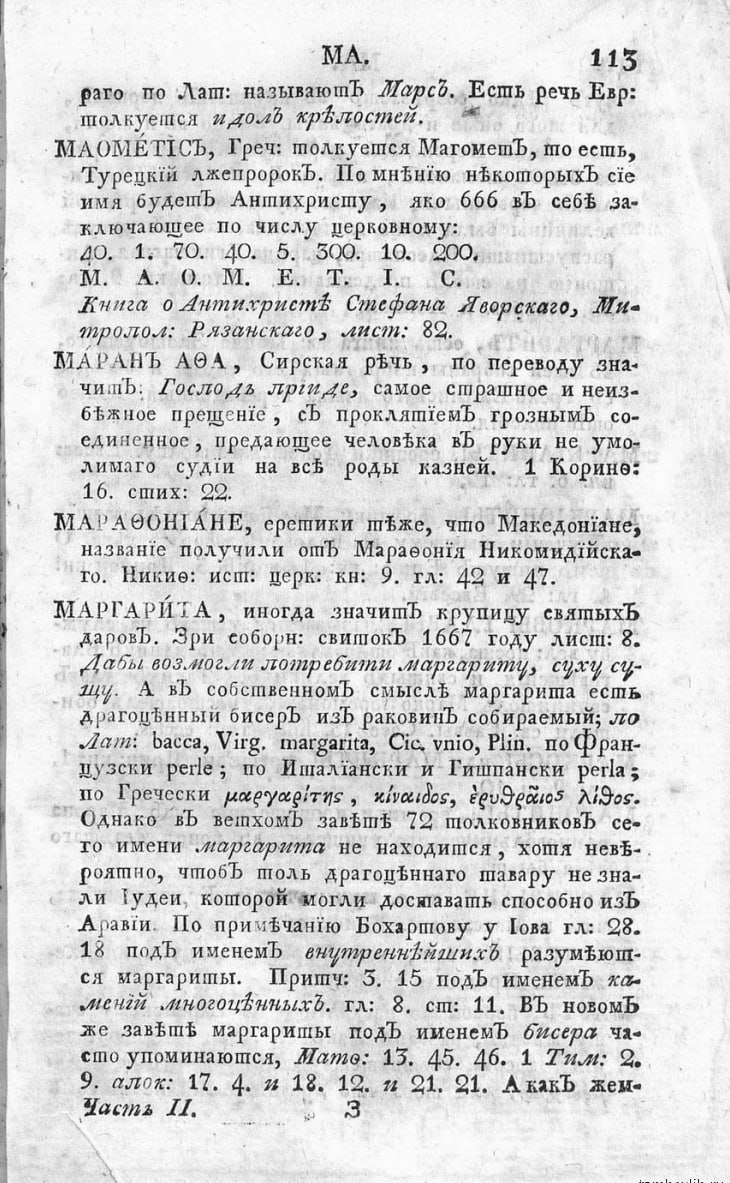 МА. 113
раго по Лат: называютЪ МарсЪ. Есть речь Евр:
толкуется идолЪ крѣпостей.
МАОМЕ́ТІСЪ, Греч: толкуется МагометЪ, то есть,
Турецкій лжепророкЪ. По мнѣнію нѣкоторыхЪ сіе
имя будетЪ Антихристу, яко 666 вЪ себѣ за-
ключающее по числу церковному:
40. 1. 70. 40. 5. 300. 10. 200.
М. А. О. М. Е. Т. І. С.
Книга о Антихристѣ Стефана Яворскаго, Ми-
тропол: Рязанскаго, лист: 82.
МА́РАНЪ АѲА, Сирская рѣчь, по переводу зна-
читЪ: Господь пріиде, самое страшное и неиз-
бѣжное прещеніе, сЪ проклятіемЪ грознымЪ со-
единенное, предающее человѣка вЪ руки не умо-
лимаго судіи на всѣ роды казней. 1 Коринѳ:
16. стих: 22.
МАРАѲОНІА́НЕ, еретики тѣже, что Македоніане,
названіе получили отЪ Мараѳонія Никомидійска-
го. Никиѳ: ист: церк: кн: 9. гл: 42 и 47.
МАРГАРИ́ТА, иногда значитЪ крупицу святыхЪ
даровЪ. Зри соборн: свитокЪ 1667 году лист: 8.
Дабы возмогли потребити маргариту, суху су-
щу. А вЪ собственномЪ смыслѣ маргарита есть
драгоцѣнный бисерЪ изЪ раковинЪ собираемый; по
Лат: bacca, Virg. margarita, Cic. vnio, Plin. по Фран-
цузски perle; по Италіански и Гишпански perla;
по Гречески μαργαρίτης, κίναιδος, ἐρυθραῖος λίθος.
Однако вЪ ветхомЪ завѣтѣ 72 толковниковЪ се-
го имени маргарита не находится, хотя невѣ-
роятно, чтобЪ толь драгоцѣннаго тавару не зна-
ли Іудеи, которой могли доставать способно изЪ
Аравіи. По примѣчанію Бохартову у Іова гл: 28.
18 подЪ именемЪ внутреннѣйшихЪ разумѣют-
ся маргариты. Притч: 3. 15 подЪ именемЪ ка-
меній многоцѣнныхЪ. гл: 8. ст: 11. ВЪ новомЪ
же завѣтѣ маргариты подЪ именемЪ бисера ча-
сто упоминаются, Матѳ: 13. 45. 46. 1 Тим: 2.
9. апок: 17. 4. и 18. 12. и 21. 21. А какЪ жем-
Часть II. З